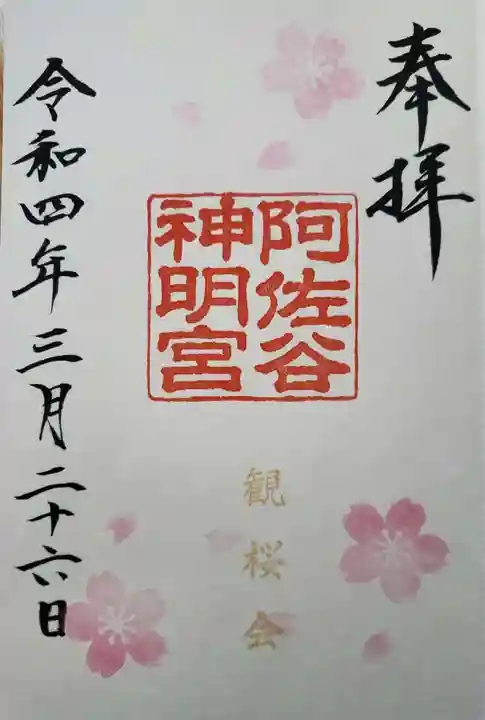 奉拝
阿佐谷
神明宮
観桜会
令和四年三月二十六日